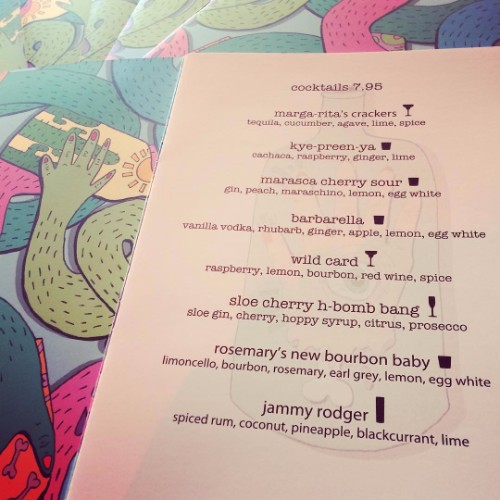 cocktalls 7.95
marga-rita's crackers
tequila, cucumber, agave, lime, spice
kye-preen-ya
cachaca, raspberry, ginger, lime
marasca cherry sour
gin, peach, maraschino, lemon, egg white
barbarella
vanilla vodka, rhubarb, ginger, apple, lemon, egg white
wild card
raspberry, lemon, bourbon, red wine, spice
sloe cherry h-bomb bang
sloe gin, cherry, hoppy syrup, citrus, prosecco
rosemary's new bourbon baby
limoncello, bourbon, rosemary, earl grey, lemon, egg white
jammy rodger
spiced rum, coconut, pineapple, blackcurrant, lime